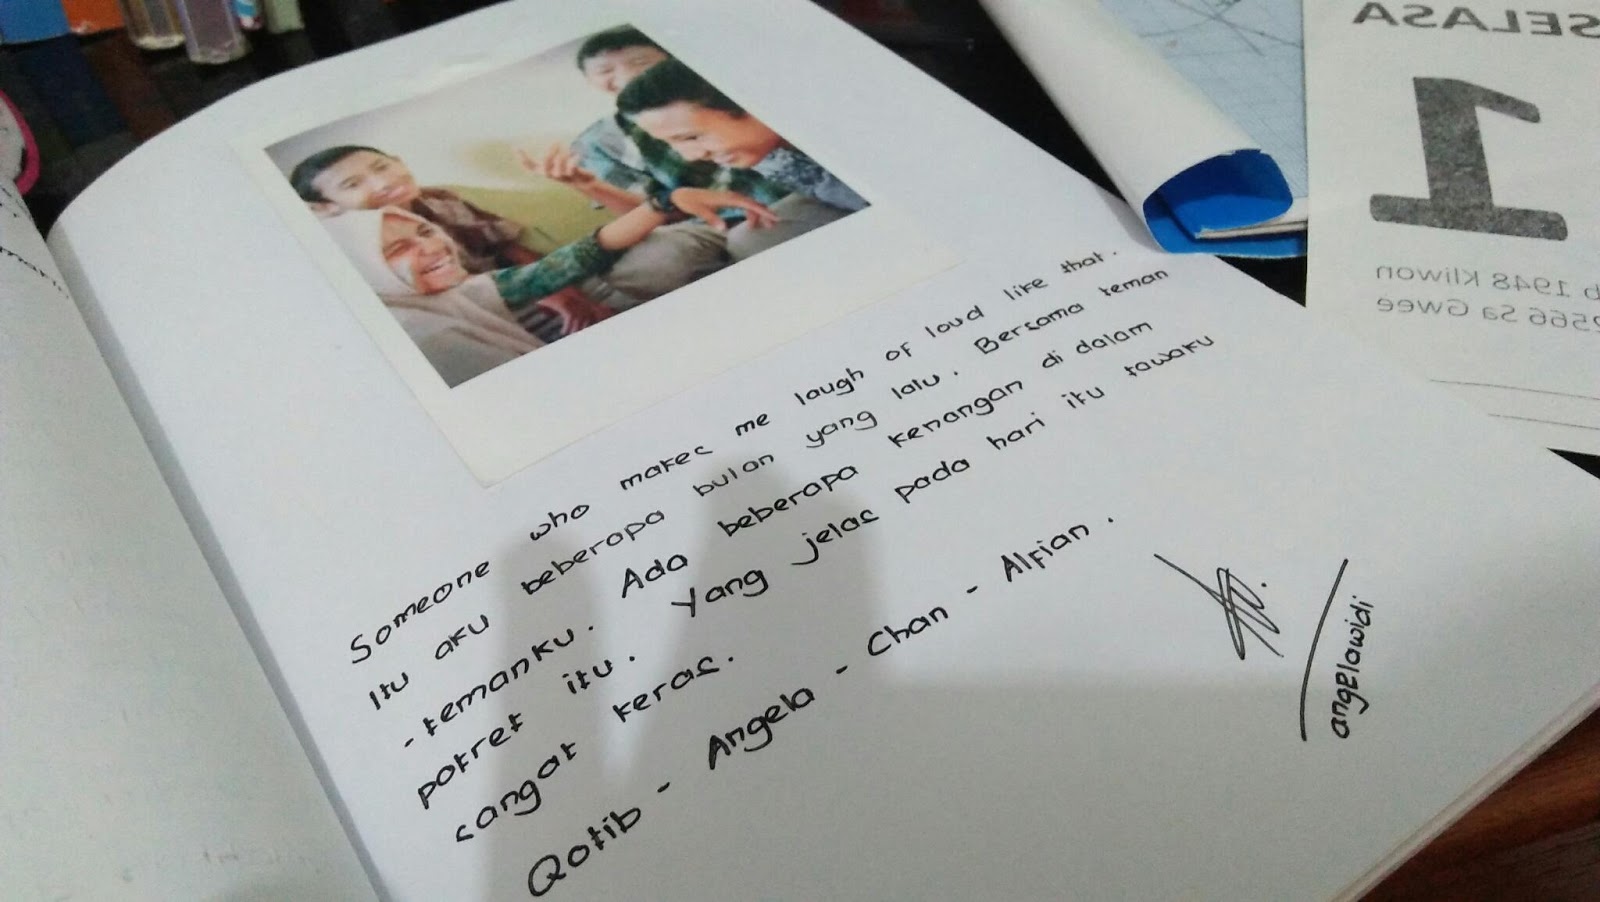 Someone who makes me laugh of loud like that.
Itu aku beberapa bulan yang lalu. Bersama teman
-temanku. Ada beberapa kenangan di dalam
potret itu. Yang jelas pada hari itu tawaku
sangat keras.
Qotib - Angela - Chan - Alfian.
angelawidi
SELASA
1
b 1948 Kliwon
2566 Sa Gwee